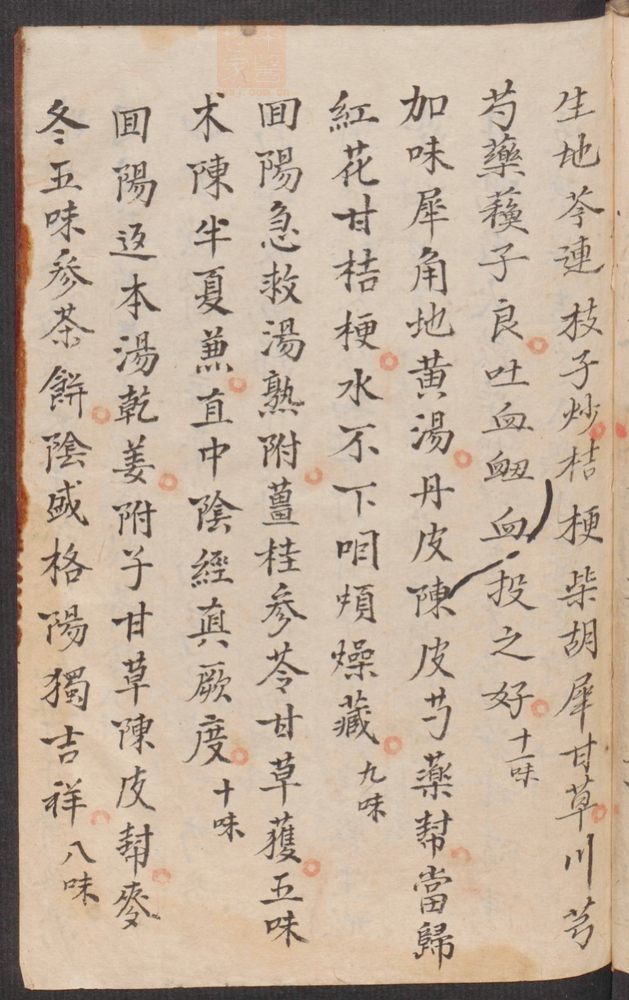 生地芩連枝子炒桔梗柴胡犀甘草川芎
芍藥蘱子良吐血衂血投之好十一味
加味犀角地黄湯丹皮陳皮芍藥幇當歸
紅花甘桔梗水不下咽煩燥藏九味
囬陽急救湯熟附薑桂參苓甘草獲五味
术陳半夏兼直中陰經真厥度十味
囬陽返本湯乾姜附子甘草陳皮幇麥
冬五味參茶餅陰盛格陽獨吉祥八味